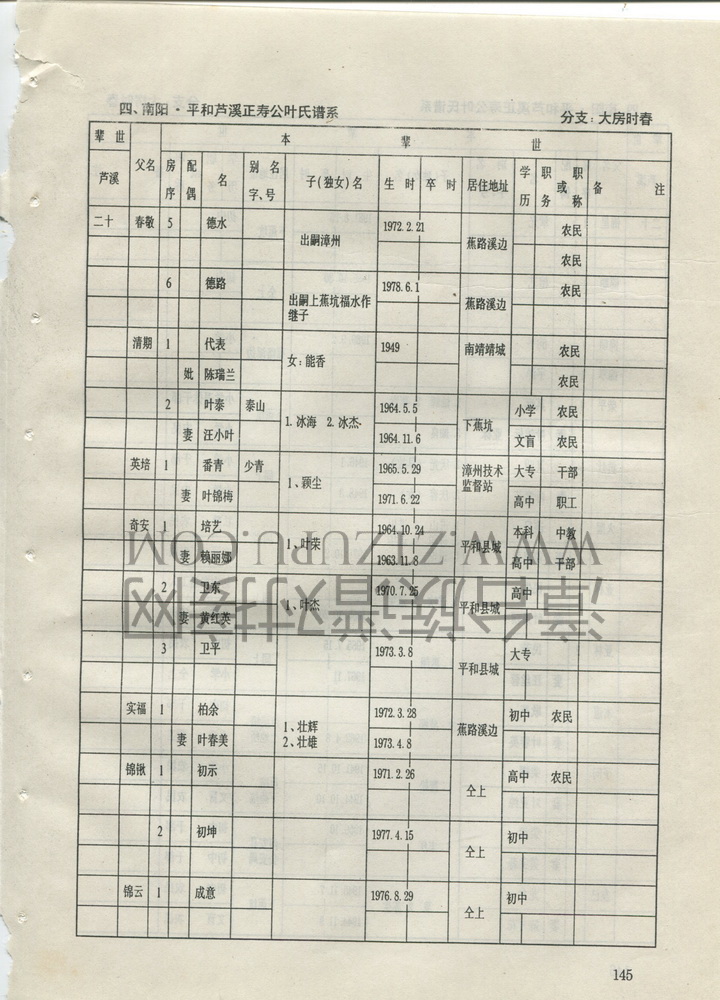 四、南阳·平和芦溪正寿公叶氏谱系 分支：大房时春
辈世 本辈世
芦溪 父名 房序 配偶 名 别名字、号 子(独女)名 生时 卒时 居住地址 学历 职务或职称 备注
二十 春敬 5 德水 出嗣漳州 1972.2.21 蕉路溪边 农民
农民
6 德路 出嗣上蕉坑福水作继子 1978.6.1 蕉路溪边 农民
清期 1 代表 女：能香 1949 南靖靖城 农民
妣 陈瑞兰 农民
2 叶泰 泰山 1.冰海 2.冰杰 1964.5.5 下蕉坑 小学 农民
妻 汪小叶 1964.11.6 文盲 农民
英培 1 番青 少青 1、颖尘 1965.5.29 漳州技术监督站 大专 干部
妻 叶锦梅 1971.6.22 高中 职工
奇安 1 培艺 1、叶荣 1964.10.24 平和县城 本科 中教
妻 赖丽娜 1963.11.8 高中 干部
2 卫东 1、叶杰 1970.7.25 平和县城 高中
妻 黄红英
3 卫平 1973.3.8 平和县城 大专
实福 1 柏余 1、壮辉 1972.3.28 蕉路溪边 初中 农民
妻 叶春美 2、壮雄 1973.4.8
锦锹 1 初示 1971.2.26 仝上 高中 农民
2 初坤 1977.4.15 仝上 初中
锦云 1 成意 1976.8.29 仝上 初中
145
WWW.ZTZUPU.COM
漳台族谱对接网